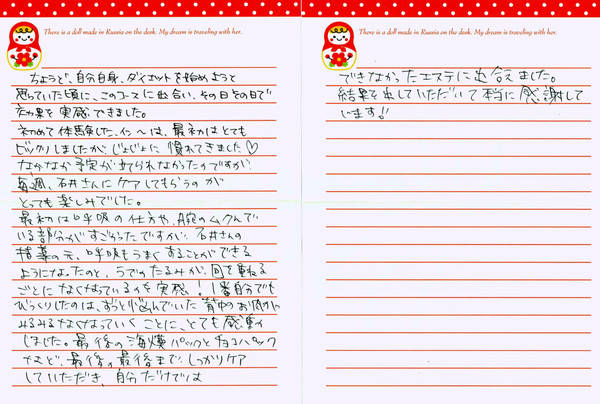 There is a doll made in Russia on the desk. My dream is traveling with her.
ちょうど、自分自身、ダイエットを始めようと
思っていた頃に、このコースに出合い、その日その日で
効果を実感できました。
初めて体験した、インヘは、最初はとても
ビックリしましたが、じょじょに慣れてきました♡
なかなか予定が立てられなかったのですが
毎週、石井さんにケアしてもらうのが
とっても楽しみでした。
最初は呼吸の仕方や、腕のムクんで
いる部分がすごかったですが、石井さんの
指導の元、呼吸もうまくすることができる
ようになったのと、うでのたるみが、回を重ねる
ごとになくなっているのを実感!1番自分でも
びっくりしたのは、ずっと悩んでいた背中のお肉が
みるみるなくなっていくことに、とても感動
しました。最後の海燥パックとチョコパック
など、最後の最後まで、しっかりケア
していただき、自分だけでは
There is a doll made in Russia on the desk. My dream is traveling with her.
できなかったエステに出合えました。
結果を出していただいて本当に感謝して
います!!